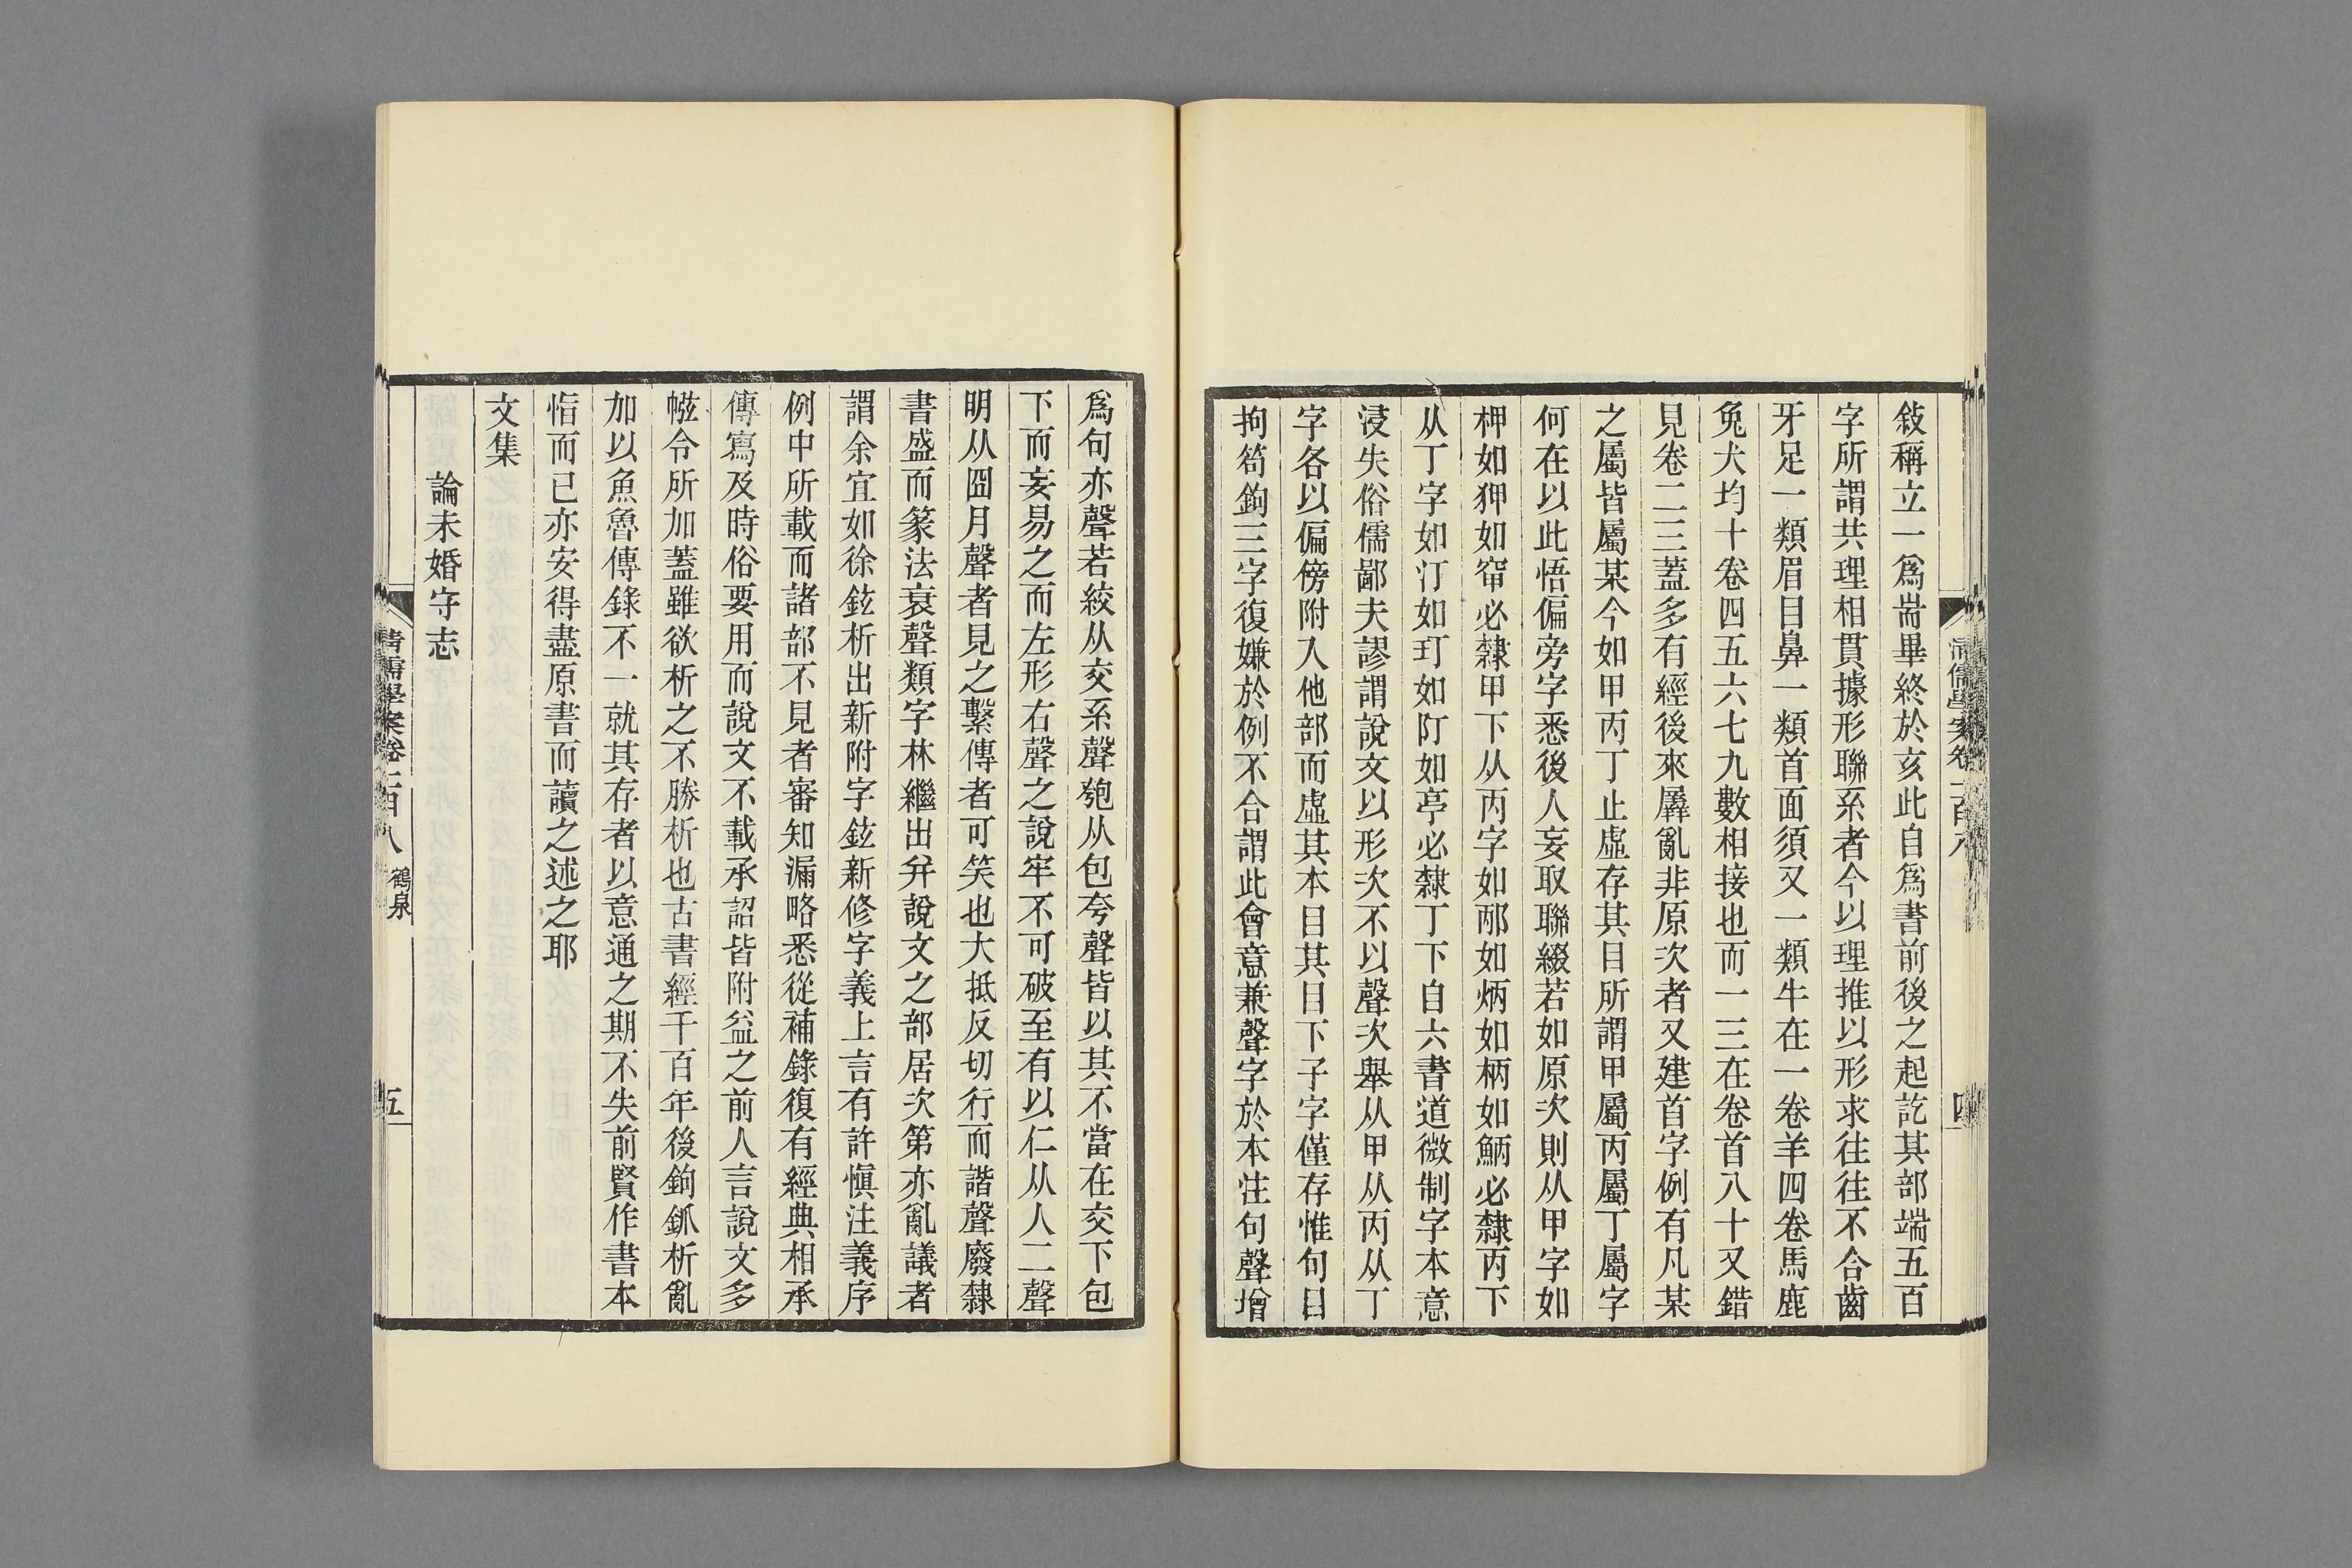 敍稱立一爲耑畢終於亥此自爲書前後之起訖其部端五百
字所謂共理相貫據形聯系者今以理推以形求往往不合齒
牙足一類眉目鼻一類首面須又一類牛在一卷羊四卷馬鹿
兔犬均十卷四五六七九數相接也而一三在卷首八十又錯
見卷二三蓋多有經後來羼亂非原次者又建首字例有凡某
之屬皆屬某今如甲丙丁止虛存其目所謂甲屬丙屬丁屬字
何在以此悟偏旁字悉後人妄取聯綴若如原次則从甲字如
柙如狎如窅必隸甲下从丙字如邴如炳如柄如鮞必隸丙下
从丁字如汀如玎如阠如亭必隸丁下自六書道微制字本意
浸失俗儒鄙夫謬謂說文以形次不以聲次舉从甲从丙从丁
字各以偏傍附入他部而虛其本目其日下子字僅存惟句目
拘笱鉤三字復嫌於例不合謂此會意兼聲字於本注句聲增
爲句亦聲若絞从交糸聲匏从包夸聲皆以其不當在交下包
下而妄易之而左形右聲之說牢不可破至有以仁从人二聲
明从囧月聲者見之繫傳者可笑也大抵反切行而諧聲廢隸
書盛而篆法衰聲類字林繼出幷說文之部居次第亦亂議者
謂余宜如徐鉉析出新附字鉉新修字義上言有許愼注義序
例中所載而諸部不見者審知漏略悉從補錄復有經典相承
傳寫及時俗要用而說文不載承詔皆附益之前人言說文多
㡭令所加蓋雖欲析之不勝析也古書經千百年後鉤釽析亂
加以魚魯傳錄不一就其存者以意通之期不失前賢作書本
恉而已亦安得盡原書而讀之述之耶
文集
論未婚守志
清儒學案卷一百八
四
清儒學案卷一百八 鶴泉
五